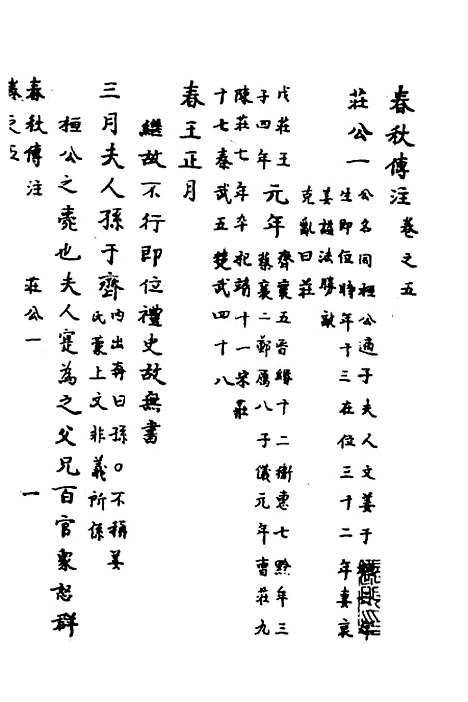 春秋傳注卷之五
莊公一 公名同桓公適子夫人文姜于
生即位時年十三在位三十二年妻哀
姜諡法勝敵
克亂曰莊
戊莊王元年齊襄五晉緡十二衞惠七黔牟三
子四年 蔡襄二鄭厲八子儀元年曹莊九
陳莊七年卒杞靖十一宋莊
十七秦武五楚武四十八
春王正月
繼故不行即位禮史故無書
三月夫人孫于齊 內出奔曰孫○不稱姜
氏蒙上文非義所係
桓公之薨也夫人寔為之父兄百官衆怒群
春秋傳注 莊公一 一
卷之五